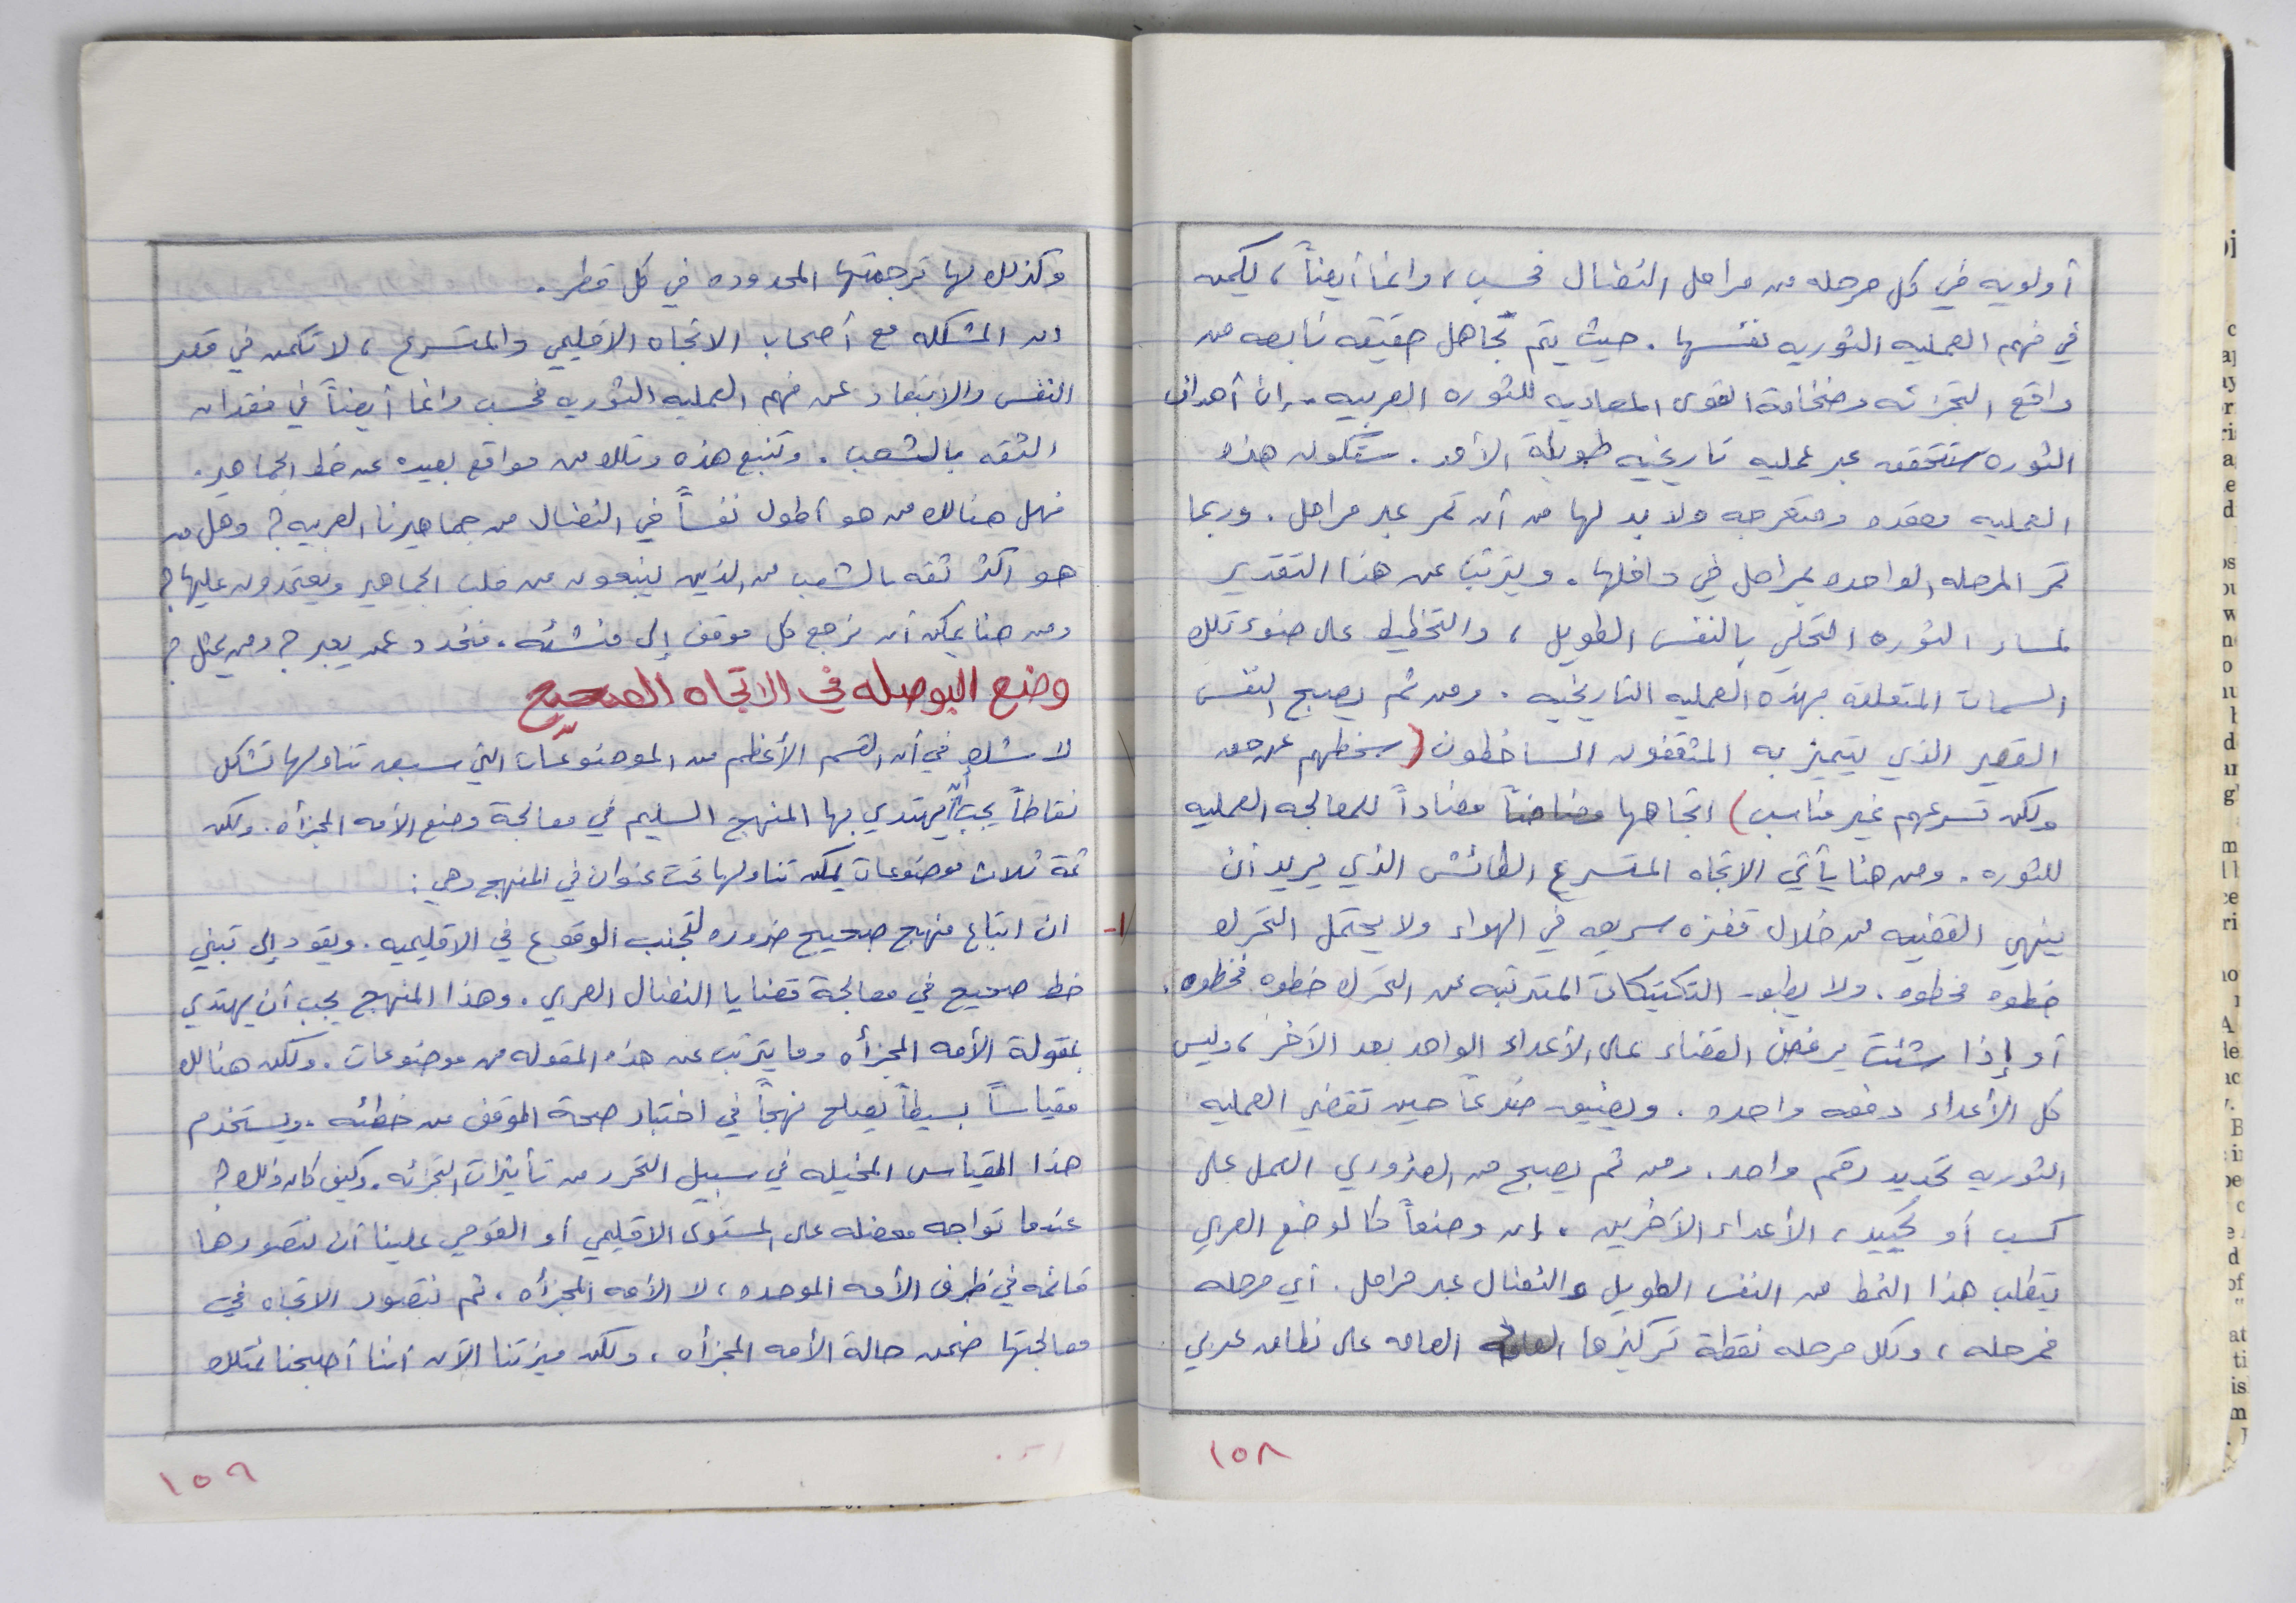 أولويه في كل مرحله من مراحل النضال فحسب، وانما أيضاً، يكمن
في فهم العمليه الثوريه نفسها. حيث يتم تجاهل حقيقه نابعه من
واقع التجزئه وضخامة القوى المعاديه للثوره العربيه.. ان أهداف
الثوره ستتحقق عبر عمليه تاريخيه طويلة الأمد. ستكون هذه
العمليه معقده ومتعرجه ولا بد لها من أن تمر عبر مراحل. وربما
تمر المرحله الواحده بمراحل في داخلها. ويترتب عن هذا التقدير
لمسار الثوره التحلي بالنفس الطويل، والتخطيط على ضوء تلك
السمات المتعلقه بهذه العمليه التاريخيه. ومن ثم يصبح النفس
القصير الذي يتميز به المثقفون الساخطون (سخطهم عن حق
ولكن تسرعهم غير مناسب) اتجاهها مضاداً للمعالجه العمليه
للثوره. ومن هنا يأتي الاتجاه المتسرع الطائش الذي يريد أن
ينهي القضيه من خلال قفزه سريعه في الهواء ولا يحتمل التحرك
خطوه فخطوه. ولا يطيق التكتيكات المترتبه عن التحرك خطوه فخطوه.
أو إذا شئت يرفض القضاء على الأعداء الواحد بعد الآخر، وليس
كل الأعداء دفعه واحده. ويضيق ضرعاً حين تقضي العمليه
الثوريه تحديد رقم واحد. ومن ثم يصبح من الضروري العمل على
كسب أو تحييد، الأعداء الآخرين. إن وضعاً كالوضع العربي
يتطلب هذا النمط من النفس الطويل والنضال عبر مراحل. أي مرحله
فمرحله، ولكل مرحله نقطة تركيزها العامه على نطاق عربي
١٥٨
وكذلك لها ترجمتها المحدوده في كل قطر.
ان المشكله مع أصحاب الاتجاه الاقليمي والمتسرع، لا تكمن في قصر
النفس والابتعاد عن فهم العمليه الثوريه فحسب وانما أيضاً في فقدان
الثقه بالشعب. وتنبع هذه وتلك من مواقع بعيده عن خط الجماهير.
فهل هنالك من هو أطول نفساً في النضال من جماهيرنا العربيه؟ وهل من
هو أكثر ثقه بالشعب من الذين ينبعون من قلب الجماهير ويعتمدون عليها؟
ومن هنا يمكن أن نرجع كل موقف إلى منشئه. فنحدد عمن يعبر؟ ومن يمثل؟
وضع البوصله في الاتجاه الصحيح
لا شك في أن القسم الأعظم من الموضوعات التي سبق تناولها تشكل
نقاطاً يجب أن يهتدي بها المنهج السليم في معالجة وضع الأمه المجزأه. ولكن
ثمة ثلاث موضوعات يمكن تناولها تحت عنوان في المنهج وهي:
١- ان اتباع منهج صحيح ضروره لتجنب الوقوع في الاقليميه. ويقود إلى تبني
خط صحيح في معالجة قضايا النضال العربي. وهذا المنهج يجب أن يهتدي
بمقولة الأمه المجزأه وما يترتب عن هذه المقوله من موضوعات. ولكن هنالك
مقياساً بسيطاً يصلح نهجاً في اختبار صحة الموقف من خطئه. ويستخدم
هذا المقياس المخيله في سبيل التحرر من تأثيرات التجزئه. وكيف كان ذلك؟
عندما تواجه معضله على المستوى الاقليمي أو القومي علينا أن نتصورها
قائمه في ظرف الأمه الموحده، لا الأمه المجزأه، ثم نتصور الاتجاه في
معالجتها ضمن حالة الأمه المجزأه، ولكن ميزتنا الآن أننا أصبحنا نمتلك
١٥٩